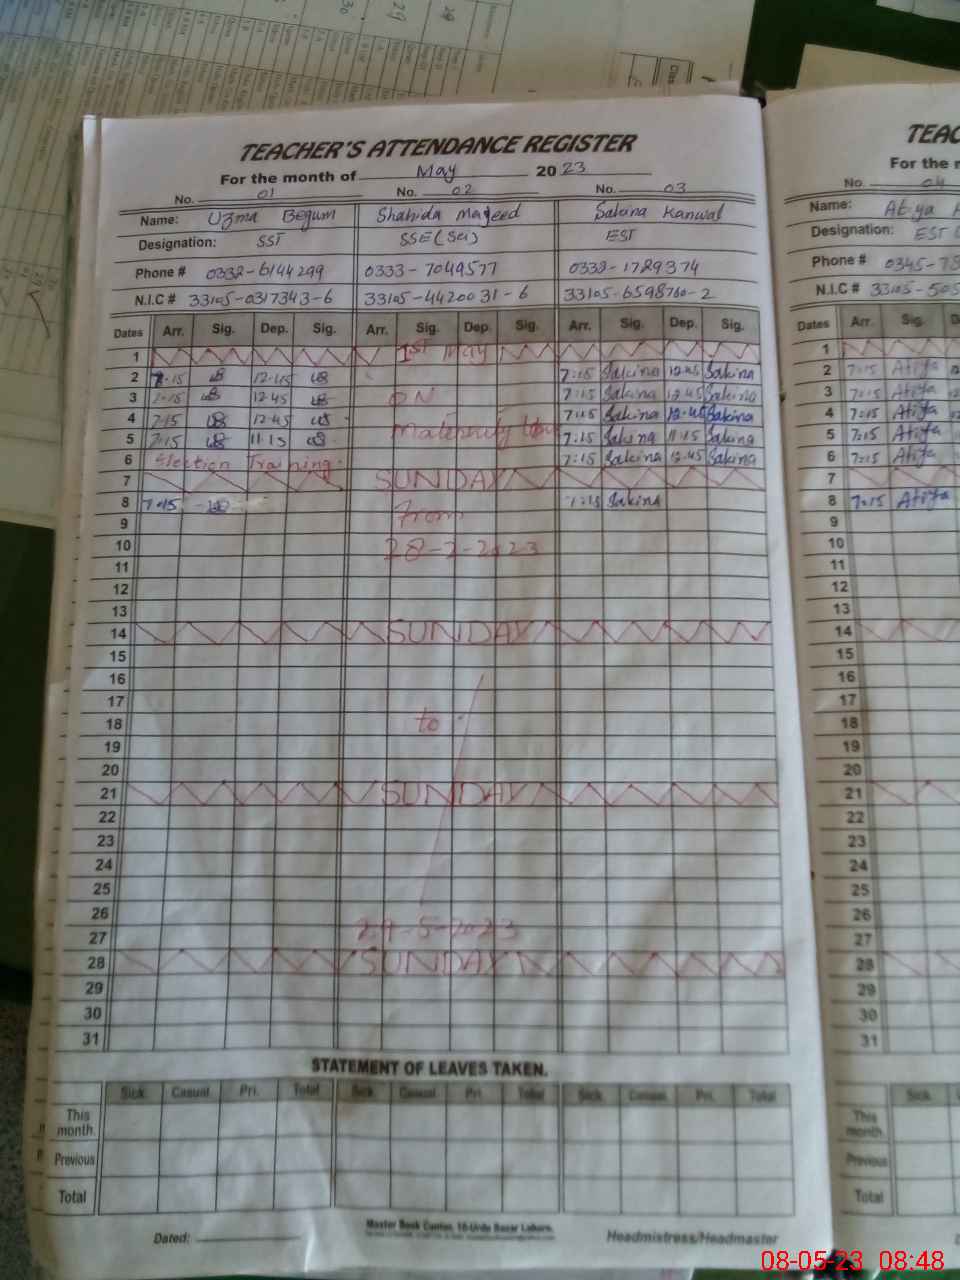 TEACHER'S ATTENDANCE REGISTER
For the month of May 2023
No. 01 No. 02 No. 03
Name: Uzma Begum Shahida Majeed Sakina Kanwal
Designation: SST SSE (Sci) EST
Phone # 0332-6144299 0333-7049577 0332-1729374
N.I.C # 33105-0317343-6 33105-4420031-6 33105-6598760-2
Dates Arr. Sig. Dep. Sig. Arr. Sig. Dep. Sig. Arr. Sig. Dep. Sig.
1 1ST May
2 7:15 12:45 7:15 Sakina 12:45 Sakina
3 7:15 12:45 ON 7:15 Sakina 12:45 Sakina
4 7:15 12:45 Maternity 7:15 Sakina 12:45 Sakina
5 7:15 11:15 7:15 Sakina 11:15 Sakina
6 Election Training 7:15 Sakina 12:45 Sakina
7 SUNDAY
8 7:15 From 7:15 Sakina
9
10 28-2-2023
11
12
13
14 SUNDAY
15
16
17
18 to
19
20
21 SUNDAY
22
23
24
25
26
27 -5-2023
28 SUNDAY
29
30
31
STATEMENT OF LEAVES TAKEN.
Sick Casual Pri. Total Sick Casual Pri. Total Sick Casual Pri. Total
This month.
Previous
Total
Dated:
Master Book Center, 10-Urdu Bazar Lahore.
Headmistress/Headmaster
TEAC
For the m
No. 04
Name: Atiya
Designation: EST
Phone # 0345-78
N.I.C # 33105-505
Dates Arr. Sig. D
1
2 7:15 Atiya
3 7:15 Atiya
4 7:15 Atiya
5 7:15 Atiya
6 7:15 Atiya
7
8 7:15 Atiya
9
10
11
12
13
14
15
16
17
18
19
20
21
22
23
24
25
26
27
28
29
30
31
Sick
This month.
Previous
Total
08-05-23 08:48